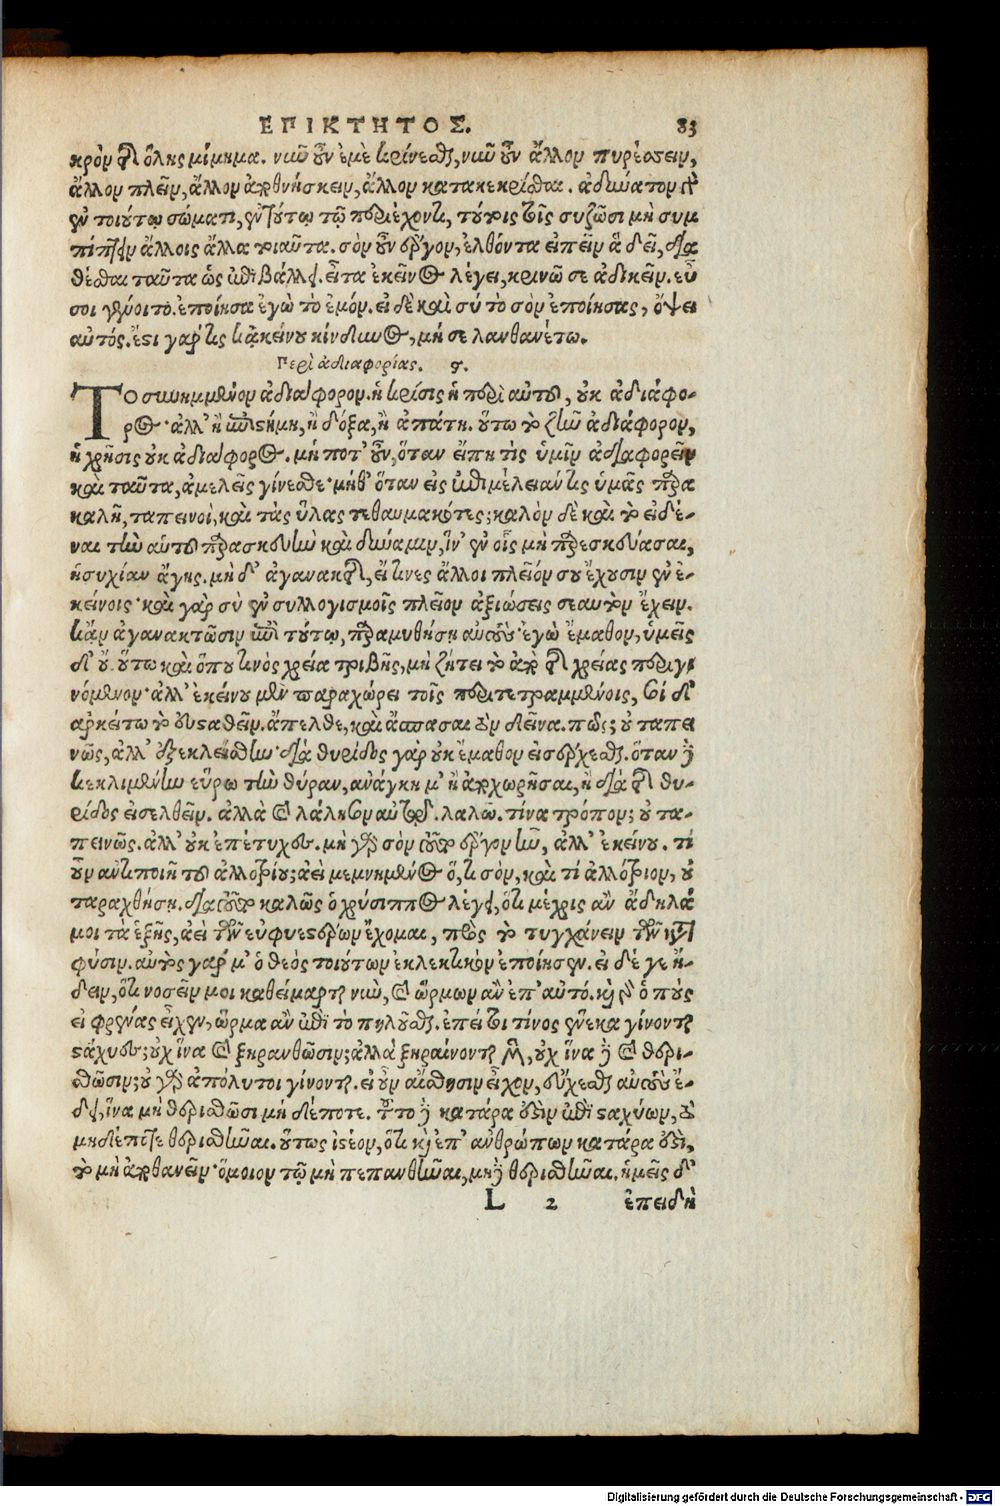 ΕΠΙΚΤΗΤΟΣ. 83
κρὸν τῆς ὅλης μίμημα. νῦν οὖν ἐμὲ κρίνεσθαι, νῦν οὖν ἄλλον πυρέσσειν,
ἄλλον πλεῖν, ἄλλον ἀποθνήσκειν, ἄλλον κατακεκρίσθαι. ἀδύνατον γὰρ
ἐν τοιούτῳ σώματι, ἐν τούτῳ τῷ περιέχοντι, τούτοις τοῖς συζῶσι μὴ συμ
πίπτειν ἄλλοις ἄλλα τοιαῦτα. σὸν οὖν ἔργον, ἐλθόντα εἰπεῖν ἃ δεῖ, δια
θέσθαι ταῦτα ὡς ἐπιβάλλει. εἶτα ἐκεῖνος λέγει, κρινῶ σε ἀδικεῖν. εὖ
σοι γένοιτο. ἐποίησα ἐγὼ τὸ ἐμόν. εἰ δὲ καὶ σύ τὸ σὸν ἐποίησας, ὄψει
αὐτός. ἔστι γάρ τις κἀκείνου κίνδυνος, μή σε λανθανέτω.
Περὶ ἀδιαφορίας. ϛ.
ΤΟ συνημμένον ἀδιάφορον. ἡ κρίσις ἡ περὶ αὐτοῦ, οὐκ ἀδιάφο-
ρος· ἀλλ' ἢ ἐπιστήμη, ἢ δόξα, ἢ ἀπάτη. οὕτω τὸ ζῆν ἀδιάφορον,
ἡ χρῆσις οὐκ ἀδιάφορος. μή ποτ' οὖν, ὅταν εἴπῃ τὶς ὑμῖν ἀδιαφορεῖν
καὶ ταῦτα, ἀμελεῖς γίνεσθε· μήθ' ὅταν εἰς ἐπιμέλειάν τις ὑμᾶς παρα
καλῇ, ταπεινοὶ, καὶ τὰς ὕλας τεθαυμακότες; καλὸν δὲ καὶ τὸ εἰδέ-
ναι τὴν αὑτοῦ παρασκευὴν καὶ δύναμιν, ἵν' ἐν οἷς μὴ παρεσκεύασαι,
ἡσυχίαν ἄγῃς. μὴ δ' ἀγανακτῇς, εἴ τινες ἄλλοι πλεῖόν σου ἔχουσιν ἐν ἐ-
κείνοις· καὶ γὰρ σὺ ἐν συλλογισμοῖς πλεῖον ἀξιώσεις σεαυτὸν ἔχειν.
κἂν ἀγανακτῶσιν ἐπὶ τούτῳ, παραμυθήσῃ αὐτούς· ἐγὼ ἔμαθον, ὑμεῖς
δ' οὔ. οὕτω καὶ ὅπου τινὸς χρεία τριβῆς, μὴ ζήτει τὸ ἀπὸ τῆς χρείας περιγι
νόμενον· ἀλλ' ἐκείνου μὲν παραχώρει τοῖς περιτετραμμένοις, σοὶ δ'
ἀρκείτω τὸ εὐσταθεῖν. ἄπελθε, καὶ ἄσπασαι τὸν δεῖνα. πῶς; οὐ ταπει
νῶς, ἀλλ' ἐξεκλείσθην· διὰ θυρίδος γὰρ οὐκ ἔμαθον εἰσέρχεσθαι. ὅταν δὲ
κεκλιμένην εὕρω τὴν θύραν, ἀνάγκη μ' ἢ ἀποχωρῆσαι, ἢ διὰ τῆς θυ-
ρίδος εἰσελθεῖν. ἀλλὰ καὶ λάλησον αὐτῷ. λαλῶ. τίνα τρόπον; οὐ τα-
πεινῶς. ἀλλ' οὐκ ἐπέτυχες. μὴ γὰρ σὸν τοῦτο ἔργον ἦν, ἀλλ' ἐκείνου. τί
οὖν ἀντιποιῇ τοῦ ἀλλοτρίου; ἀεὶ μεμνημένος ὅ,τι σὸν, καὶ τί ἀλλότριον, οὐ
ταραχθήσῃ. διὰ τοῦτο καλῶς ὁ χρύσιππος λέγει, ὅτι μέχρις ἂν ἄδηλά
μοι τὰ ἑξῆς, ἀεὶ τῶν εὐφυεστέρων ἔχομαι, πρὸς τὸ τυγχάνειν τῶν κατὰ
φύσιν. αὐτὸς γάρ μ' ὁ θεὸς τοιούτων ἐκλεκτικὸν ἐποίησεν. εἰ δέ γε ἤ-
δειν, ὅτι νοσεῖν μοι καθείμαρται νῦν, καὶ ὥρμων ἂν ἐπ' αὐτό. καὶ γὰρ ὁ πούς
εἰ φρένας εἶχεν, ὥρμα ἂν ἐπὶ τὸ πηλοῦσθαι. ἐπεί τοι τίνος ἕνεκα γίνονται
στάχυες; οὐχ ἵνα καὶ ξηρανθῶσιν; ἀλλὰ ξηραίνονται μὲν, οὐχ ἵνα δὲ καὶ θερι-
σθῶσιν; οὐ γὰρ ἀπόλυτοι γίνονται. εἰ οὖν αἴσθησιν εἶχον, εὔχεσθαι αὐτοὺς ἔ-
δει, ἵνα μὴ θερισθῶσι μή δέποτε. τοῦτο δὲ κατάρα ἐστὶν ἐπὶ σταχύων, τὸ
μηδέποτε θερισθῆναι. οὕτως ἰστέον, ὅτι καὶ ἐπ' ἀνθρώπων κατάρα ἐστὶ,
τὸ μὴ ἀποθανεῖν· ὅμοιον τῷ μὴ πεπανθῆναι, μὴ δὲ θερισθῆναι. ἡμεῖς δ'
L 2 ἐπειδὴ
Digitalisierung gefördert durch die Deutsche Forschungsgemeinschaft - DFG